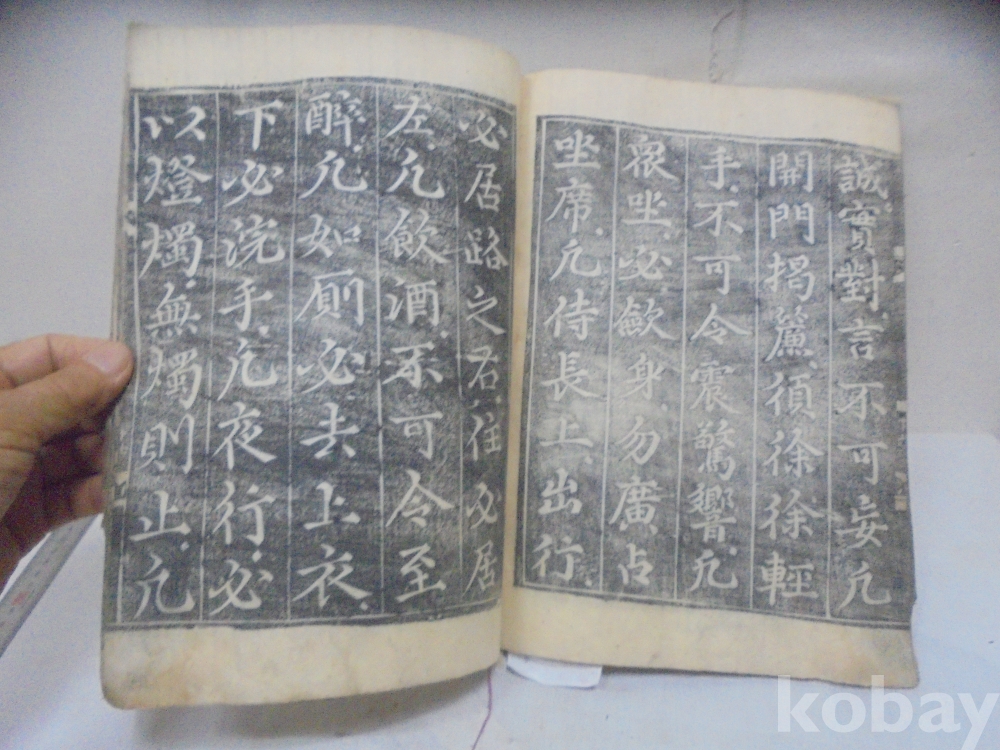 誠實對言不可妄凡
開門揭簾須徐徐輕
手不可令震驚響凡
衆坐必歛身勿廣占
坐席凡侍長上出行
必居路之右住必居
左凡飲酒不可令至
醉凡如厠必去上衣
下必浣手凡夜行必
以燈燭無燭則止凡
kobay